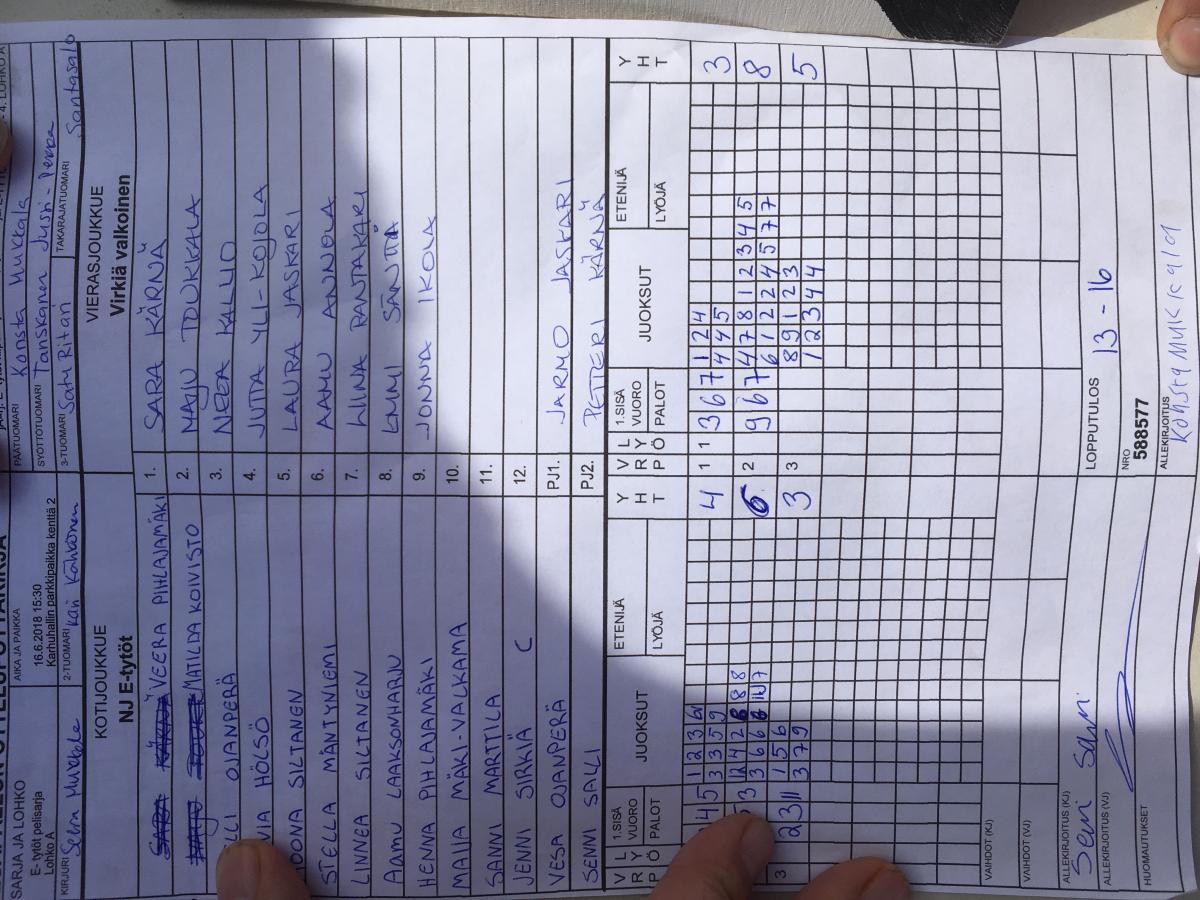 SARJA JA LOHKO
E- tytöt pelisarja
Lohko A
AIKA JA PAIKKA
16.6.2018 15:30
Karhuhallin parkkipaikka kenttä 2
PÄÄTUOMARI
Konsta Mukkala
SYÖTTÖTUOMARI Tanskanen Jussi-Pekka
KIRJURI
2-TUOMARI Kari Kähkönen
3-TUOMARI Satu Ritari
TAKARAJATUOMARI Santasalo
KOTIJOUKKUE
NJ E-tytöt
VIERASJOUKKUE
Virkiä valkoinen
VEERA PIHLAJAMÄKI 1. SARA KÄRNÄ
MATILDA KOIVISTO 2. MAIJU TOUKKALA
OJANPERÄ 3. NEEA KALLIO
HÖLSÖ 4. JUTTA YLI-KOJOLA
SILTANEN 5. LAURA JASKARI
STELLA MÄNTYNIEMI 6. AAMU ANNOLA
LINNEA SILTANEN 7. LIINA RANTAKARI
AAMU LAAKSONHARJU 8. EMMI SÄNTTI
HENNA PIHLAJAMÄKI 9. JONNA IKOLA
MAIJA MÄKI-VALKAMA 10.
SANNI MARTTILA 11.
JENNI SIRKIÄ C 12.
VESA OJANPERÄ PJ1. JARMO JASKARI
SENNI SALLI PJ2. PETTERI KÄRNÄ
V R P L Y Ö 1.SISÄ VUORO PALOT JUOKSUT ETENIJÄ LYÖJÄ Y H T V R P L Y Ö 1.SISÄ VUORO PALOT JUOKSUT ETENIJÄ LYÖJÄ Y H T
4 1 1 3 6 7 1 2 4 3
3 3 5 9 4 4 5
6 2 9 6 7 4 7 8 1 2 3 4 5 8
6 1 2 2 4 5 7 7
3 2 3 11 1 5 6 3 3 8 9 1 2 3 5
3 7 9 1 2 3 4 4
VAIHDOT (KJ)
VAIHDOT (VJ)
ALLEKIRJOITUS (KJ)
Senni Salli
LOPPUTULOS 13 - 16
ALLEKIRJOITUS (VJ)
NRO
588577
HUOMAUTUKSET
ALLEKIRJOITUS
Konsta Mukkala